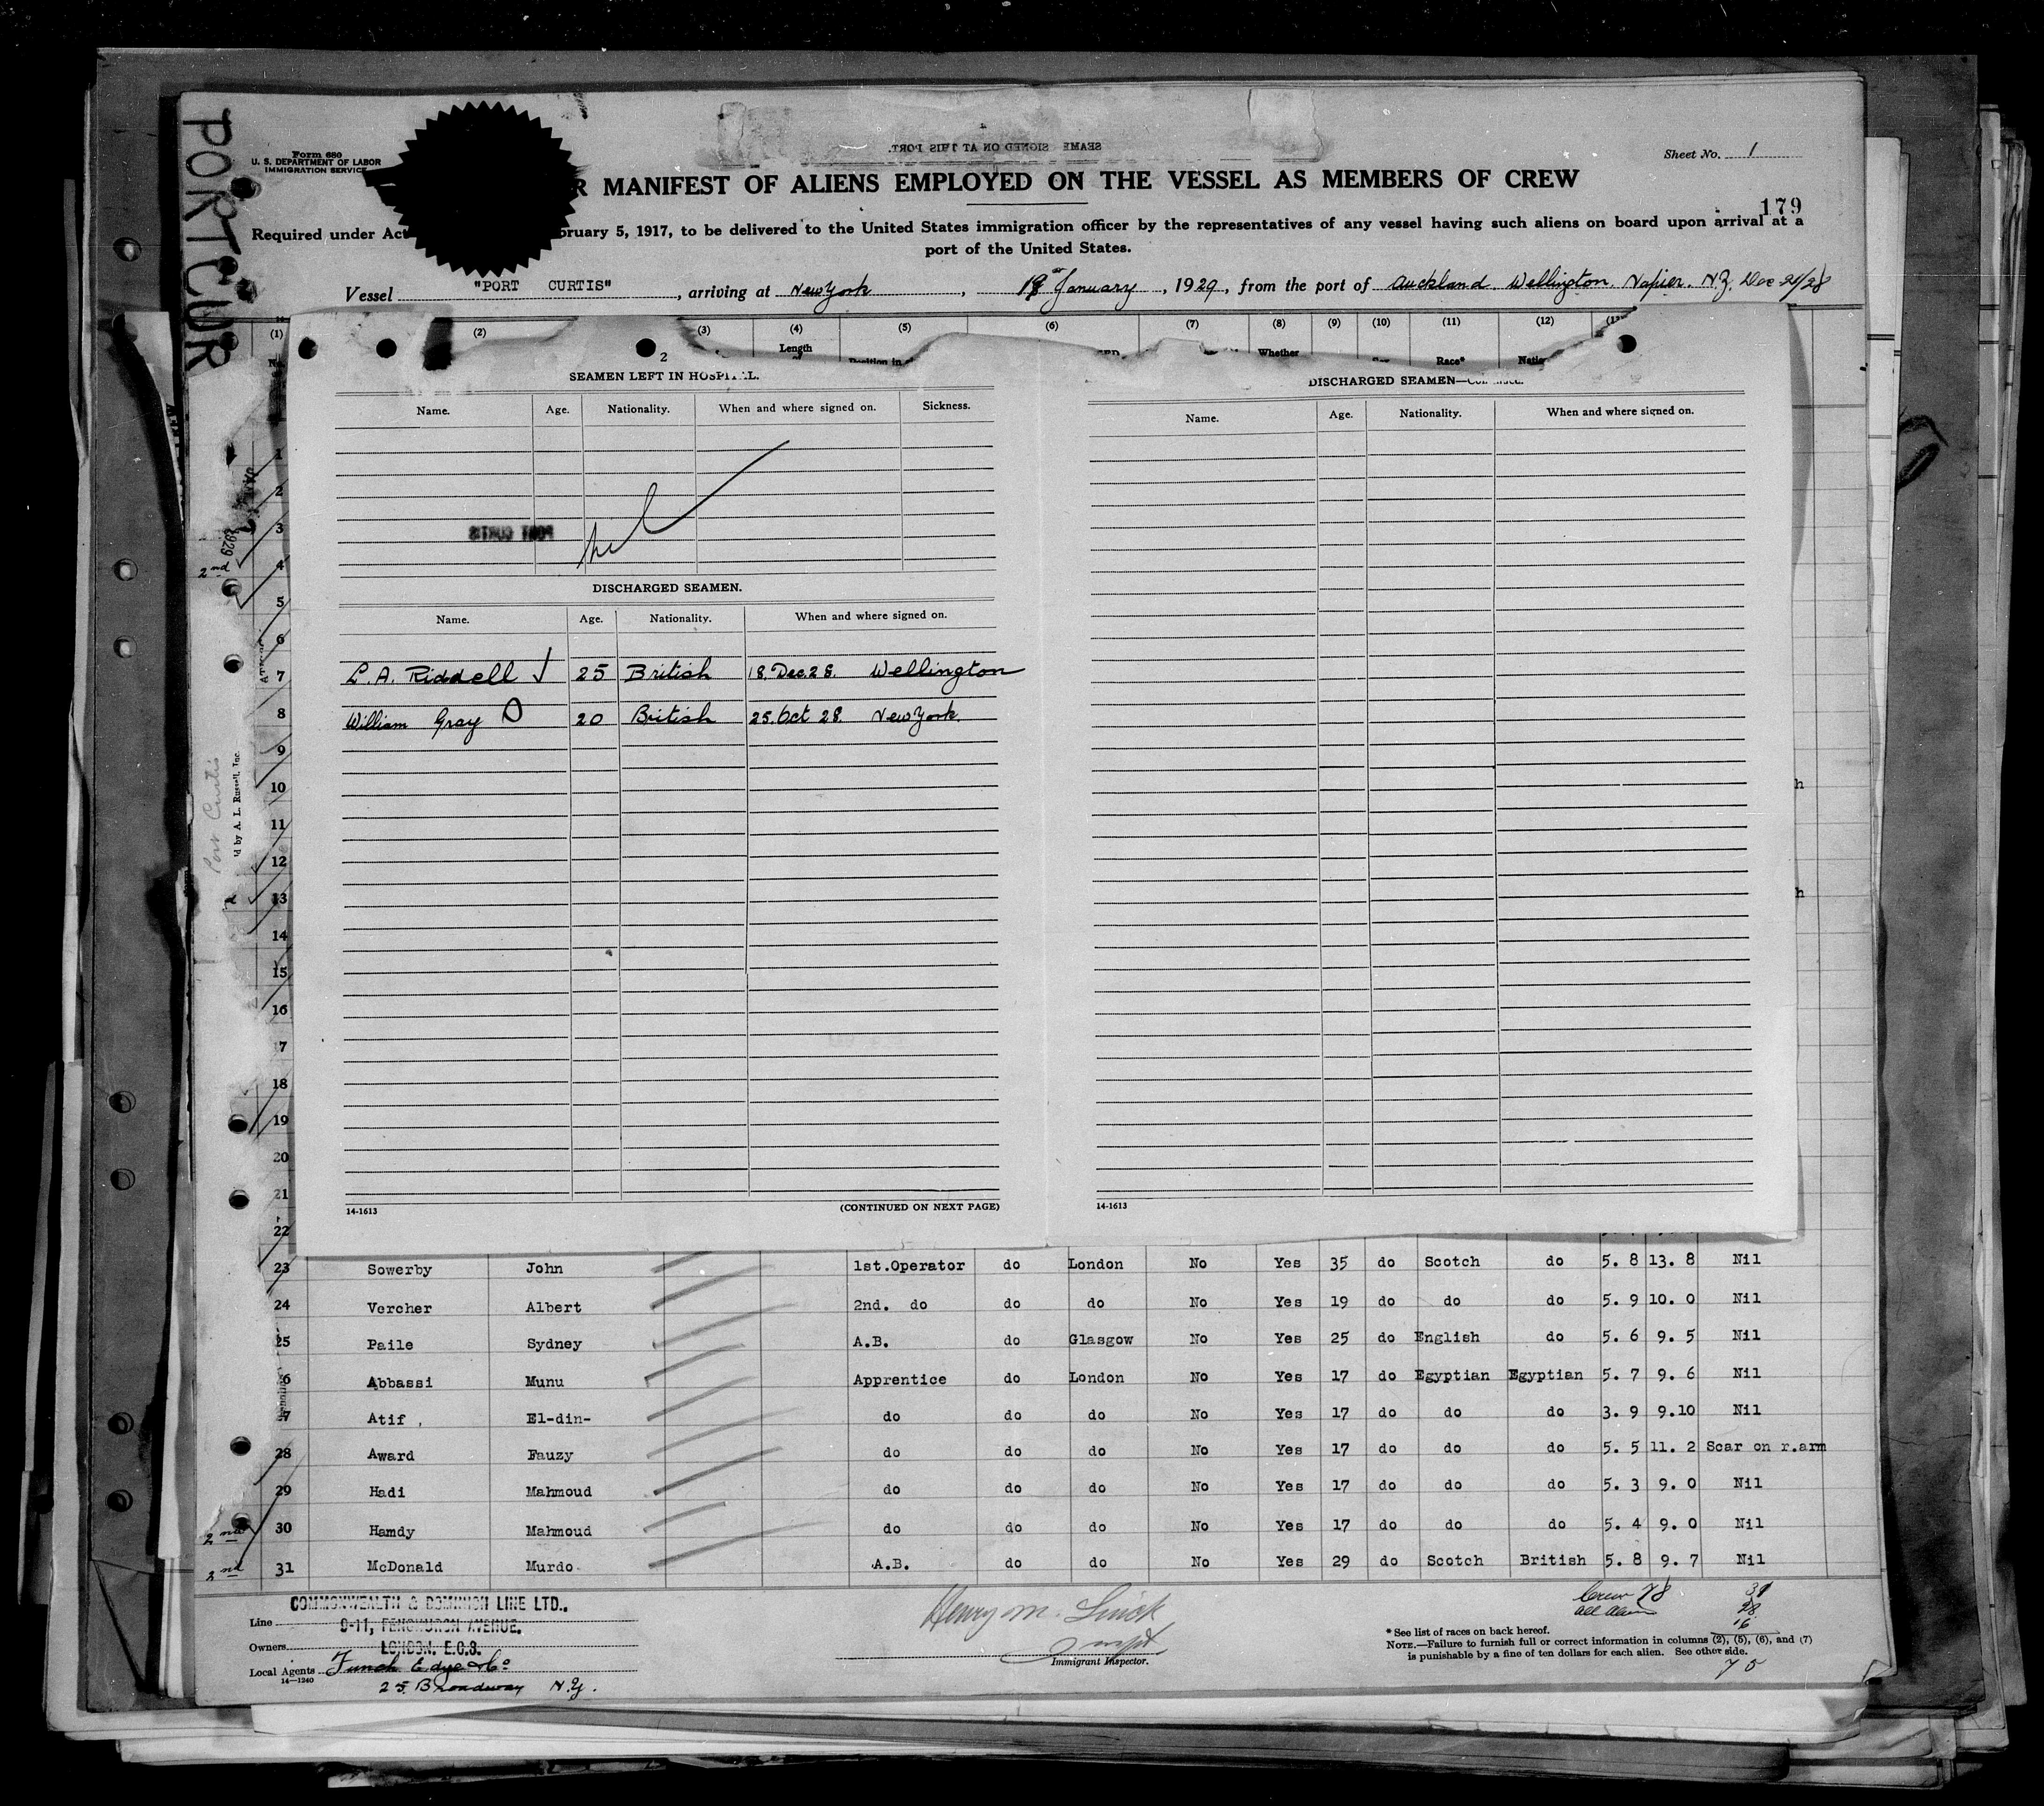 PORTCUR
Form 680
U. S. DEPARTMENT OF LABOR
IMMIGRATION SERVICE
SEAMEN SIGNED ON AT THIS PORT.
Sheet No. 1
R MANIFEST OF ALIENS EMPLOYED ON THE VESSEL AS MEMBERS OF CREW
179
Required under Act bruary 5, 1917, to be delivered to the United States immigration officer by the representatives of any vessel having such aliens on board upon arrival at a
port of the United States.
Vessel "PORT CURTIS" , arriving at New York , January , 1929 , from the port of Auckland Wellington. Napier. N.Z.
(1) (2) (3) (4) (5) (6) (7) (8) (9) (10) (11) (12)
Length Position in Whether Race*
2
SEAMEN LEFT IN HOSPITAL.
Name. Age. Nationality. When and where signed on. Sickness.
nil
PORT CURTIS
DISCHARGED SEAMEN.
Name. Age. Nationality. When and where signed on.
L.A. Riddell 25 British 18.Dec.28. Wellington
William Gray 20 British 25.Oct 28. New York.
14-1613 (CONTINUED ON NEXT PAGE)
DISCHARGED SEAMEN—
Name. Age. Nationality. When and where signed on.
14-1613
1
2
3
2nd 4
5
6
7
8
9
10
11
12
13
14
15
16
17
18
19
20
21
22
1929
Port Curtis
d by A. L. Russell, Inc.
23 Sowerby John 1st.Operator do London No Yes 35 do Scotch do 5. 8 13. 8 Nil
24 Vercher Albert 2nd. do do do No Yes 19 do do do 5. 9 10. 0 Nil
25 Paile Sydney A.B. do Glasgow No Yes 25 do English do 5. 6 9. 5 Nil
6 Abbassi Munu Apprentice do London No Yes 17 do Egyptian Egyptian 5. 7 9. 6 Nil
27 Atif El-din- do do do No Yes 17 do do do 3. 9 9.10 Nil
28 Award Fauzy do do do No Yes 17 do do do 5. 5 11. 2 Scar on r.arm
29 Hadi Mahmoud do do do No Yes 17 do do do 5. 3 9. 0 Nil
2nd 30 Hamdy Mahmoud do do do No Yes 17 do do do 5. 4 9. 0 Nil
2nd 31 McDonald Murdo A.B. do do No Yes 29 do Scotch British 5. 8 9. 7 Nil
Line COMMONWEALTH & DOMINION LINE LTD.,
9-11, FENCHURCH AVENUE.
Owners LONDON. E.C.3.
Local Agents Funch Edye & Co
14—1240
25 Broadway N.Y.
Henry M.
Immigrant Inspector.
Crew 78
28
16
75
* See list of races on back hereof.
NOTE.—Failure to furnish full or correct information in columns (2), (5), (6), and (7)
is punishable by a fine of ten dollars for each alien. See other side.